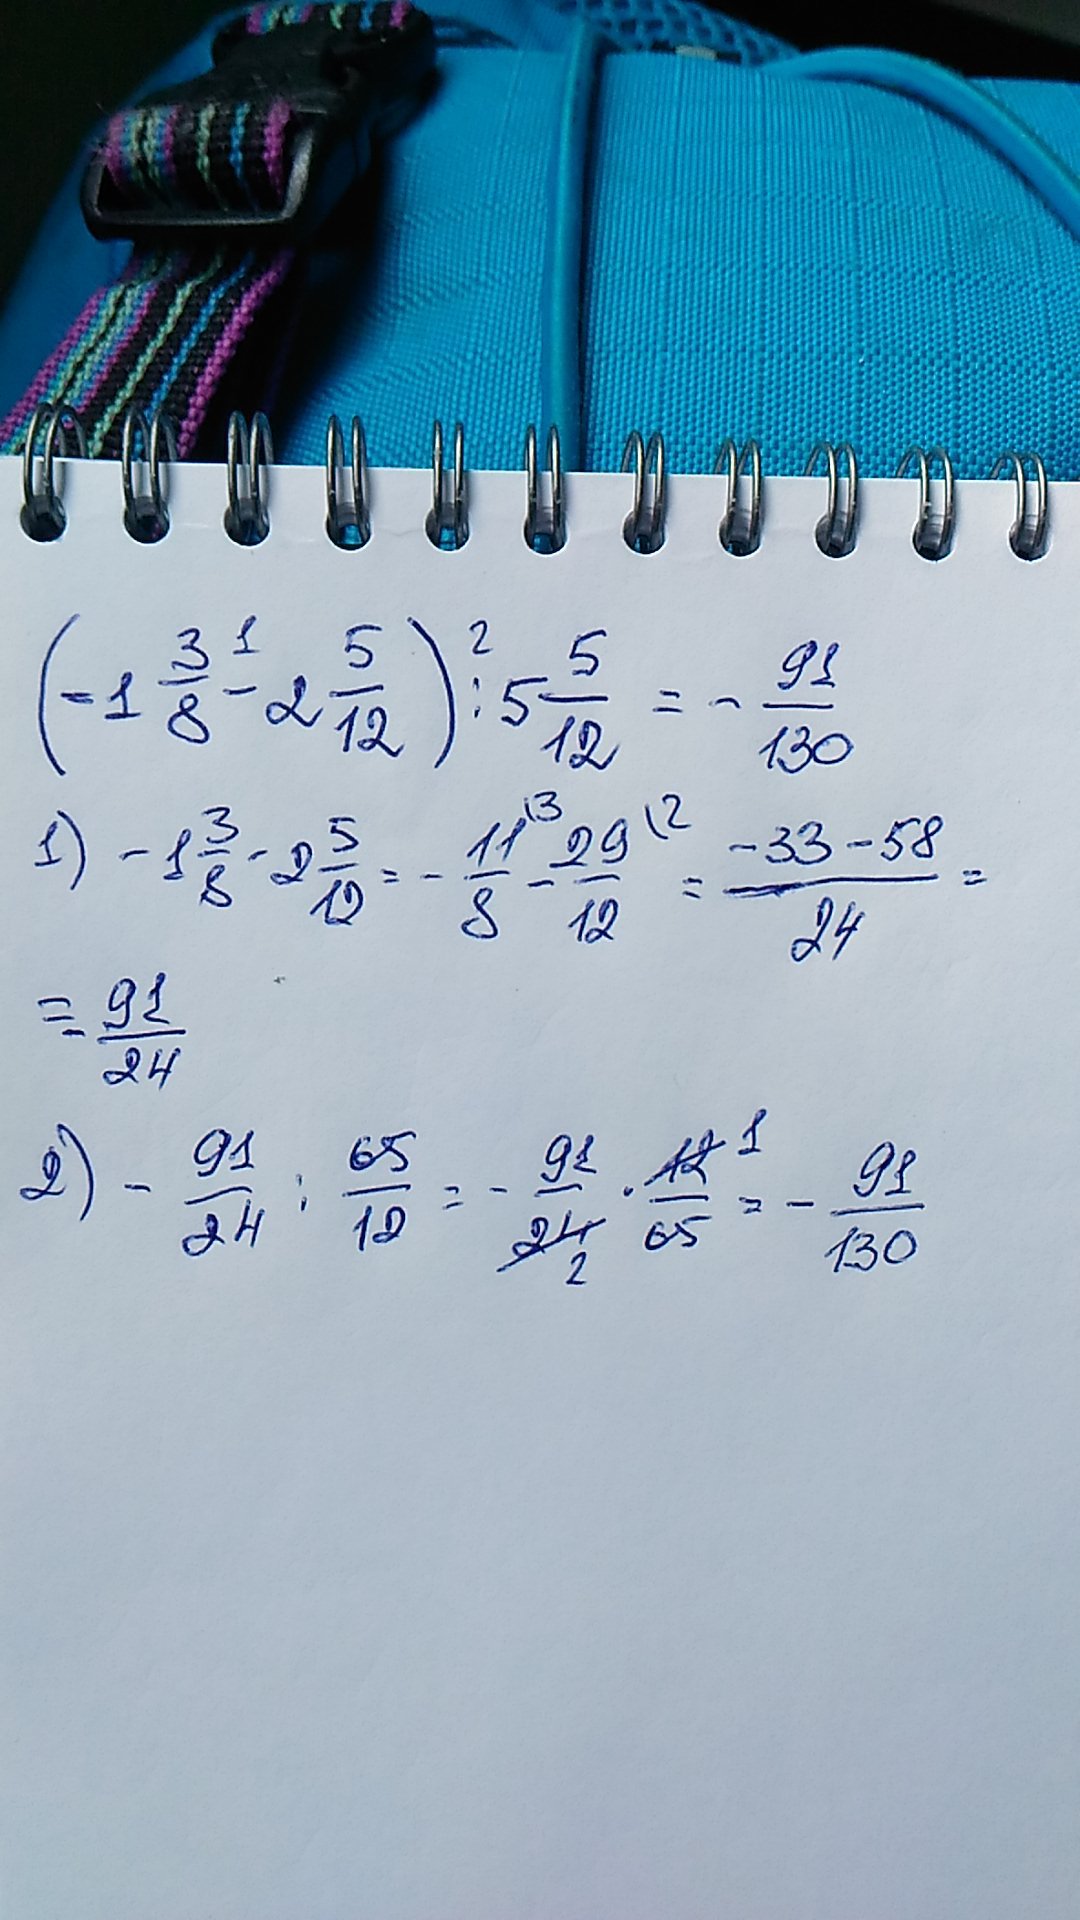 (-1 3/8 -¹ 2 5/12) :² 5 5/12 = - 91/130
1) -1 3/8 - 2 5/12 = - 11/8 \3 - 29/12 \2 = (-33-58)/24 =
= - 91/24
2) - 91/24 : 65/12 = - 91/24 2 · 12/65 1 = - 91/130